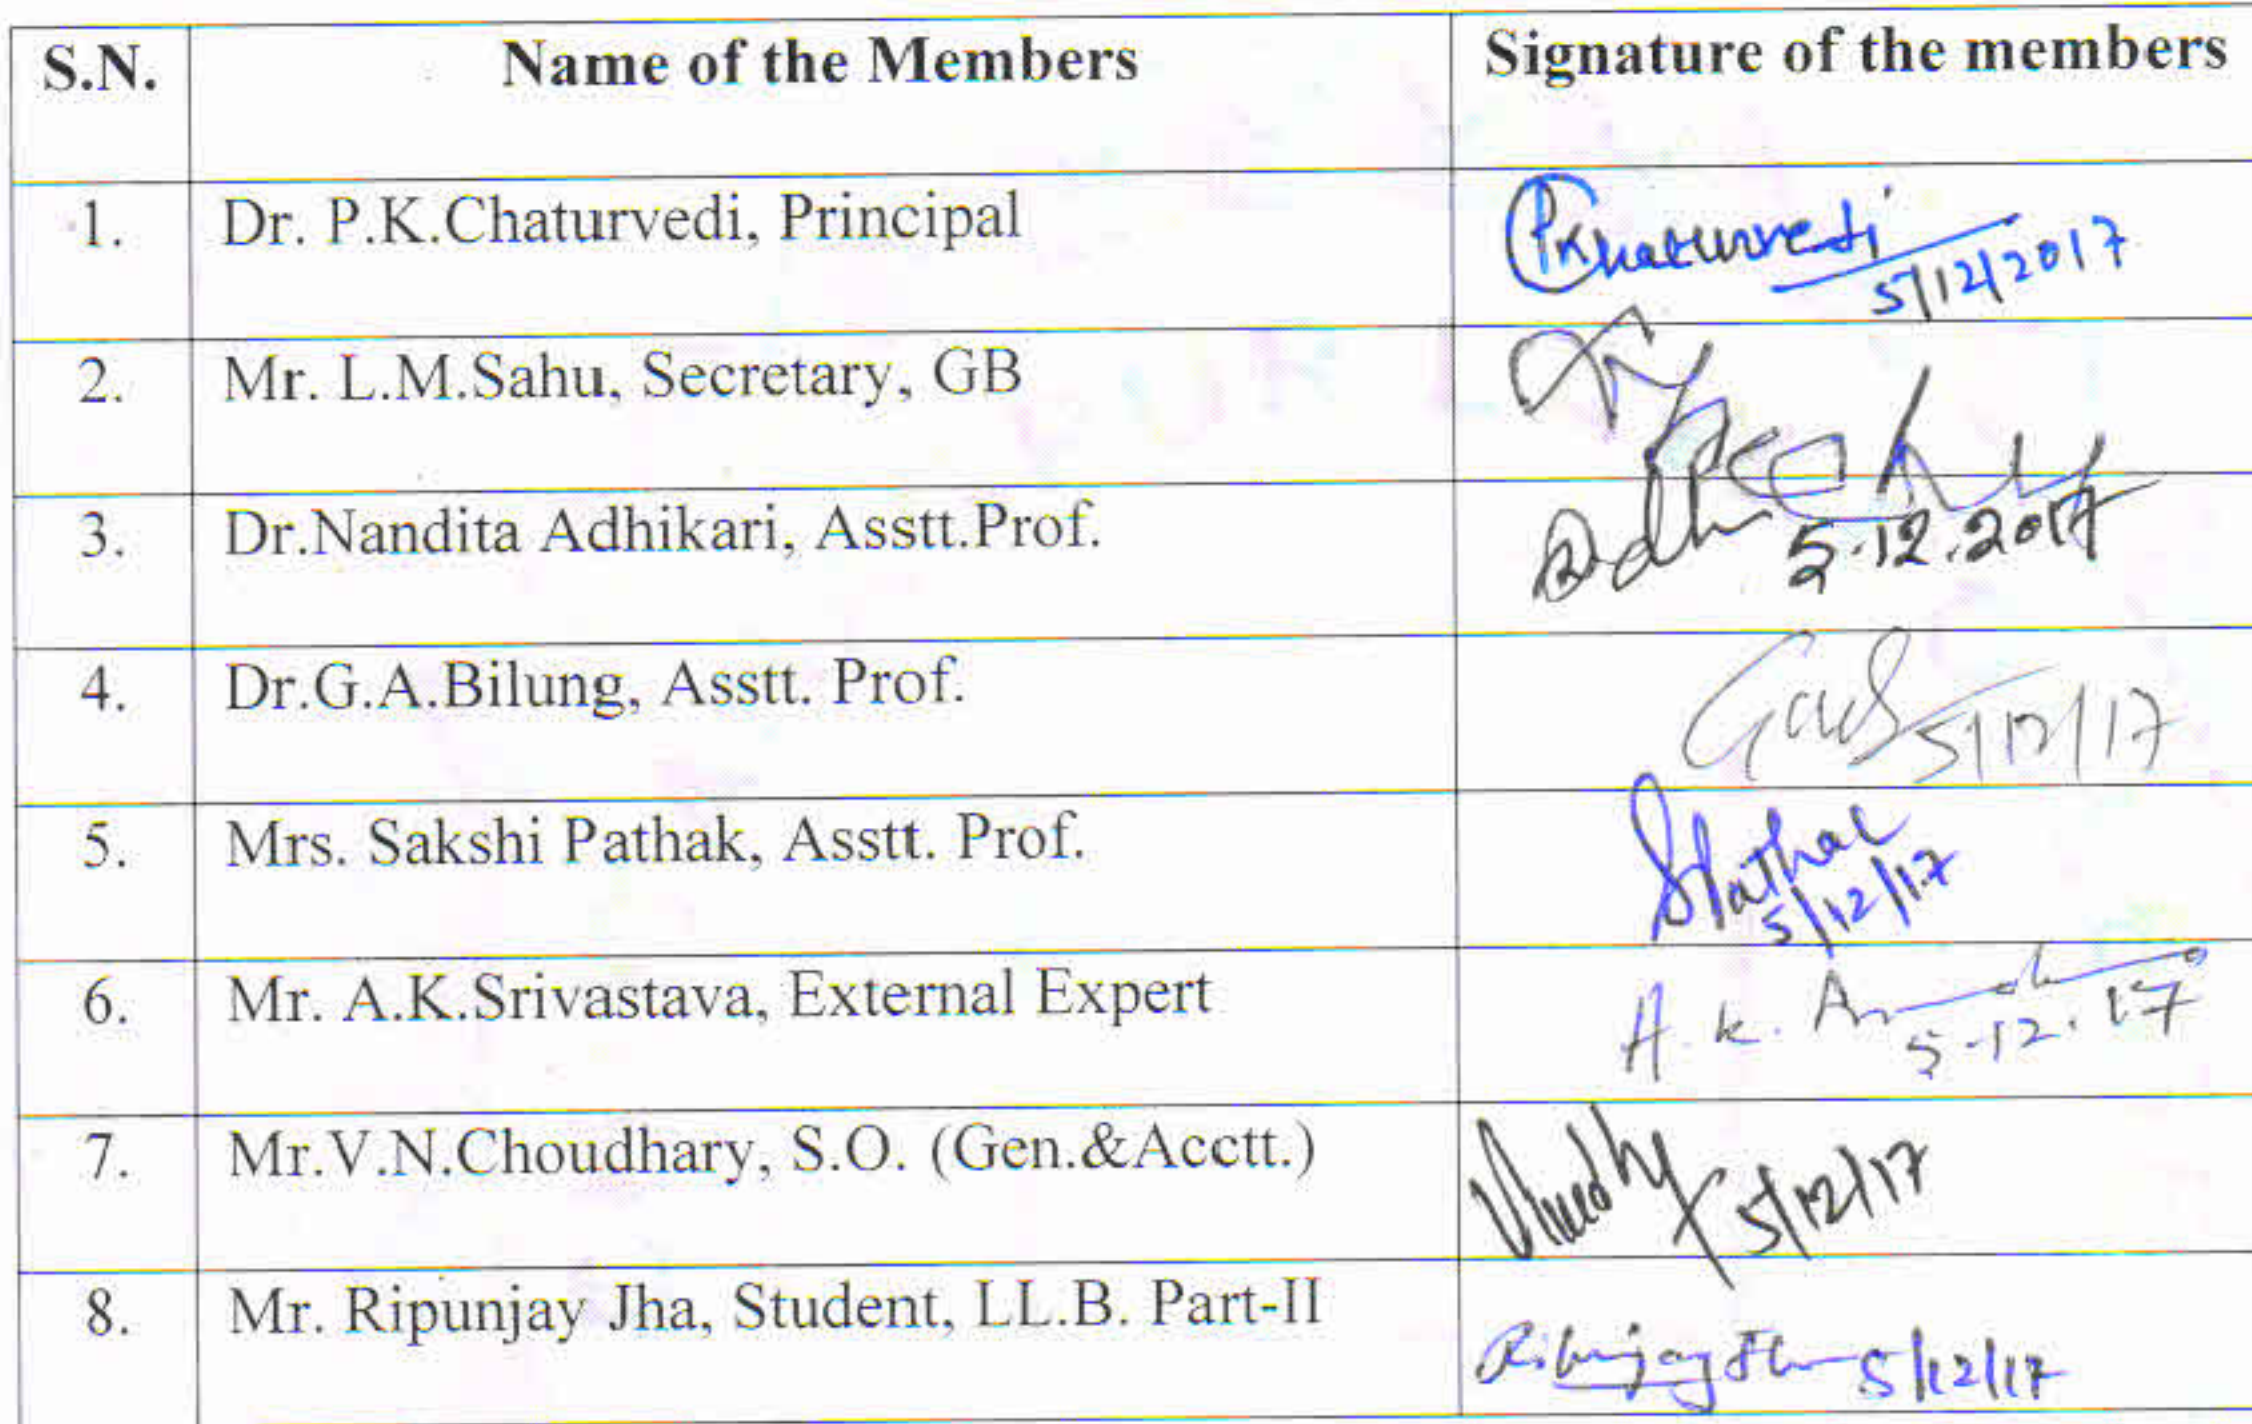 S.N. Name of the Members Signature of the members
1. Dr. P.K.Chaturvedi, Principal PKChaturvedi
5/12/2017
2. Mr. L.M.Sahu, Secretary, GB
3. Dr.Nandita Adhikari, Asstt.Prof. 5.12.2017
4. Dr.G.A.Bilung, Asstt. Prof. 5/12/17
5. Mrs. Sakshi Pathak, Asstt. Prof. SPathak
5/12/17
6. Mr. A.K.Srivastava, External Expert A.K.
5.12.17
7. Mr.V.N.Choudhary, S.O. (Gen.&Acctt.) 5/12/17
8. Mr. Ripunjay Jha, Student, LL.B. Part-II Ripunjay Jha 5/12/17